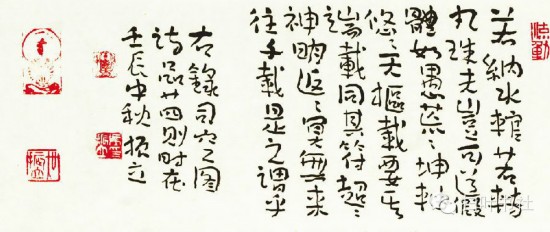 流動
若納水輨若轉
丸珠夫豈可道假
體如愚荒〻坤軸
悠〻天樞載要其
端載同其符超〻
神明返〻冥無來
往千載是之謂乎
右錄司空圖
詩品廿四則時在
壬辰中秋 振立